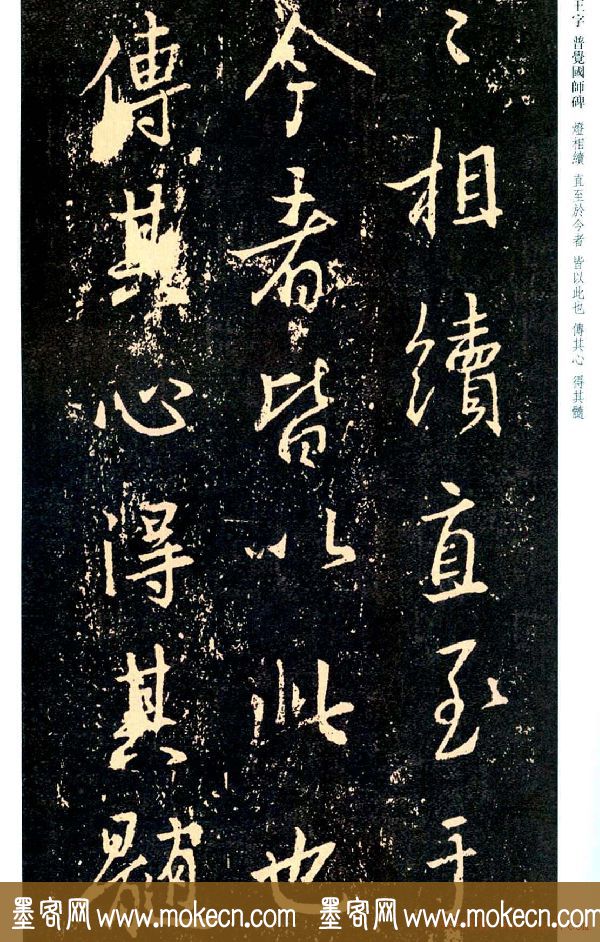 王字 普覺國師碑 燈相續 直至於今者 皆以此也 傳其心 得其髓
〻相續直至于
今者皆以此也
傳其心得其髓
墨客网 www.mokecn.com 墨客网 www.mokecn.com